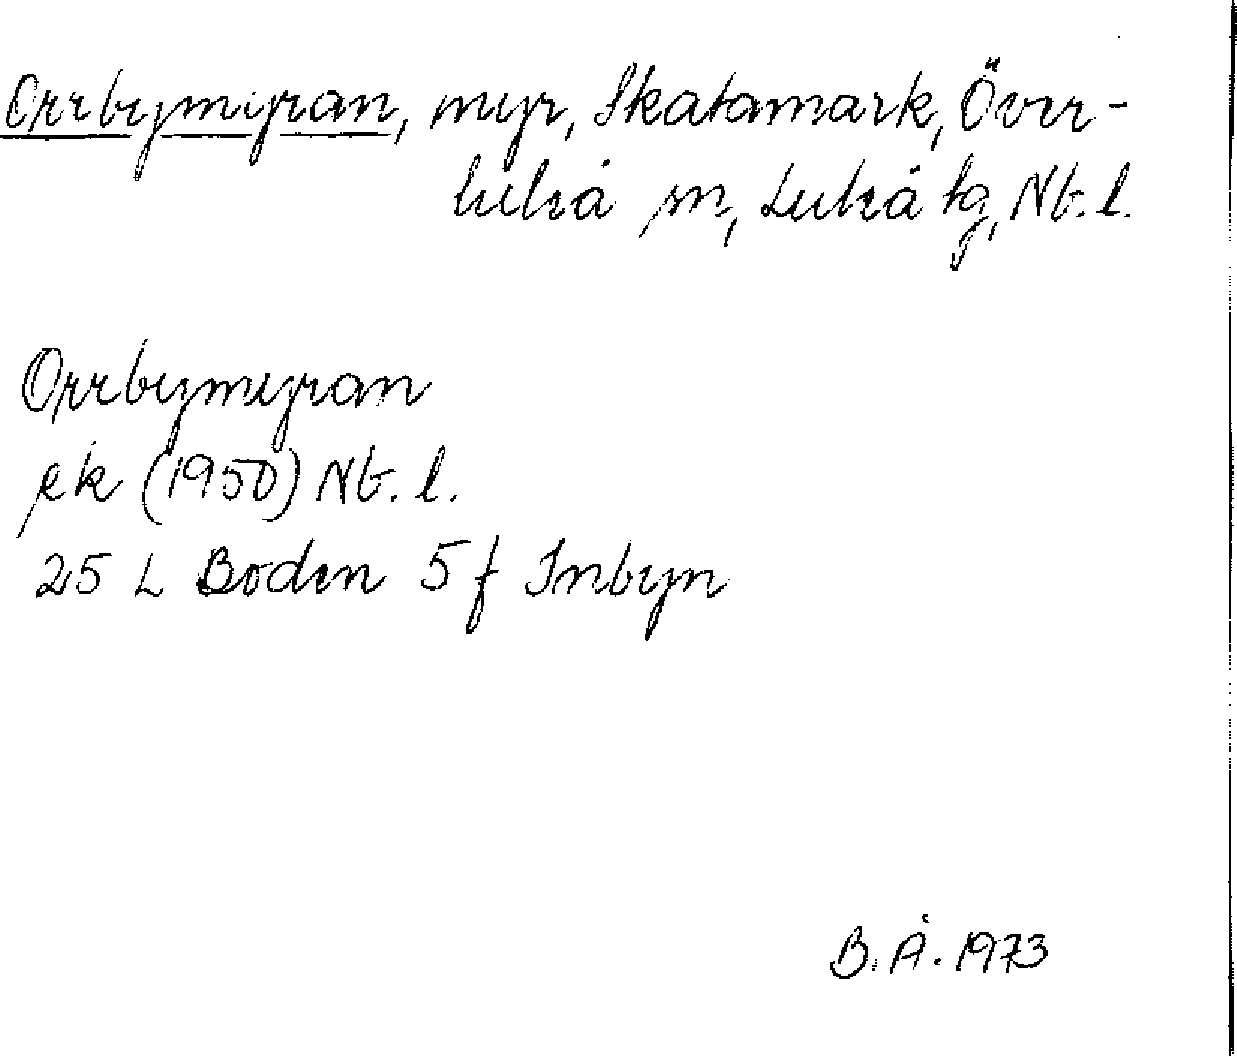 Orrbymyran, myr, Skatamark, Över-
luleå sn, Luleå tg, Nb. l.
Orrbymyran
ek (1950) Nb. l.
25 L Boden 5 f Inbyn
B. Å. 1973